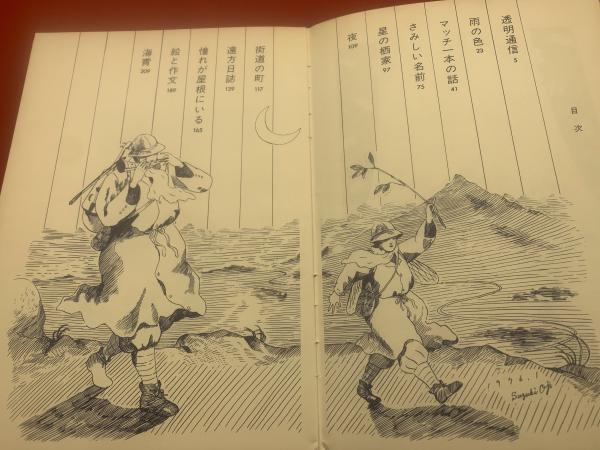 目次
透明通信 5
雨の色 23
マッチ一本の話 41
さみしい名前 75
星の栖家 97
夜 109
街道の町 117
遠方日誌 139
憧れが屋根にいる 165
絵と作文 189
海霄 209
Suzuki Oji